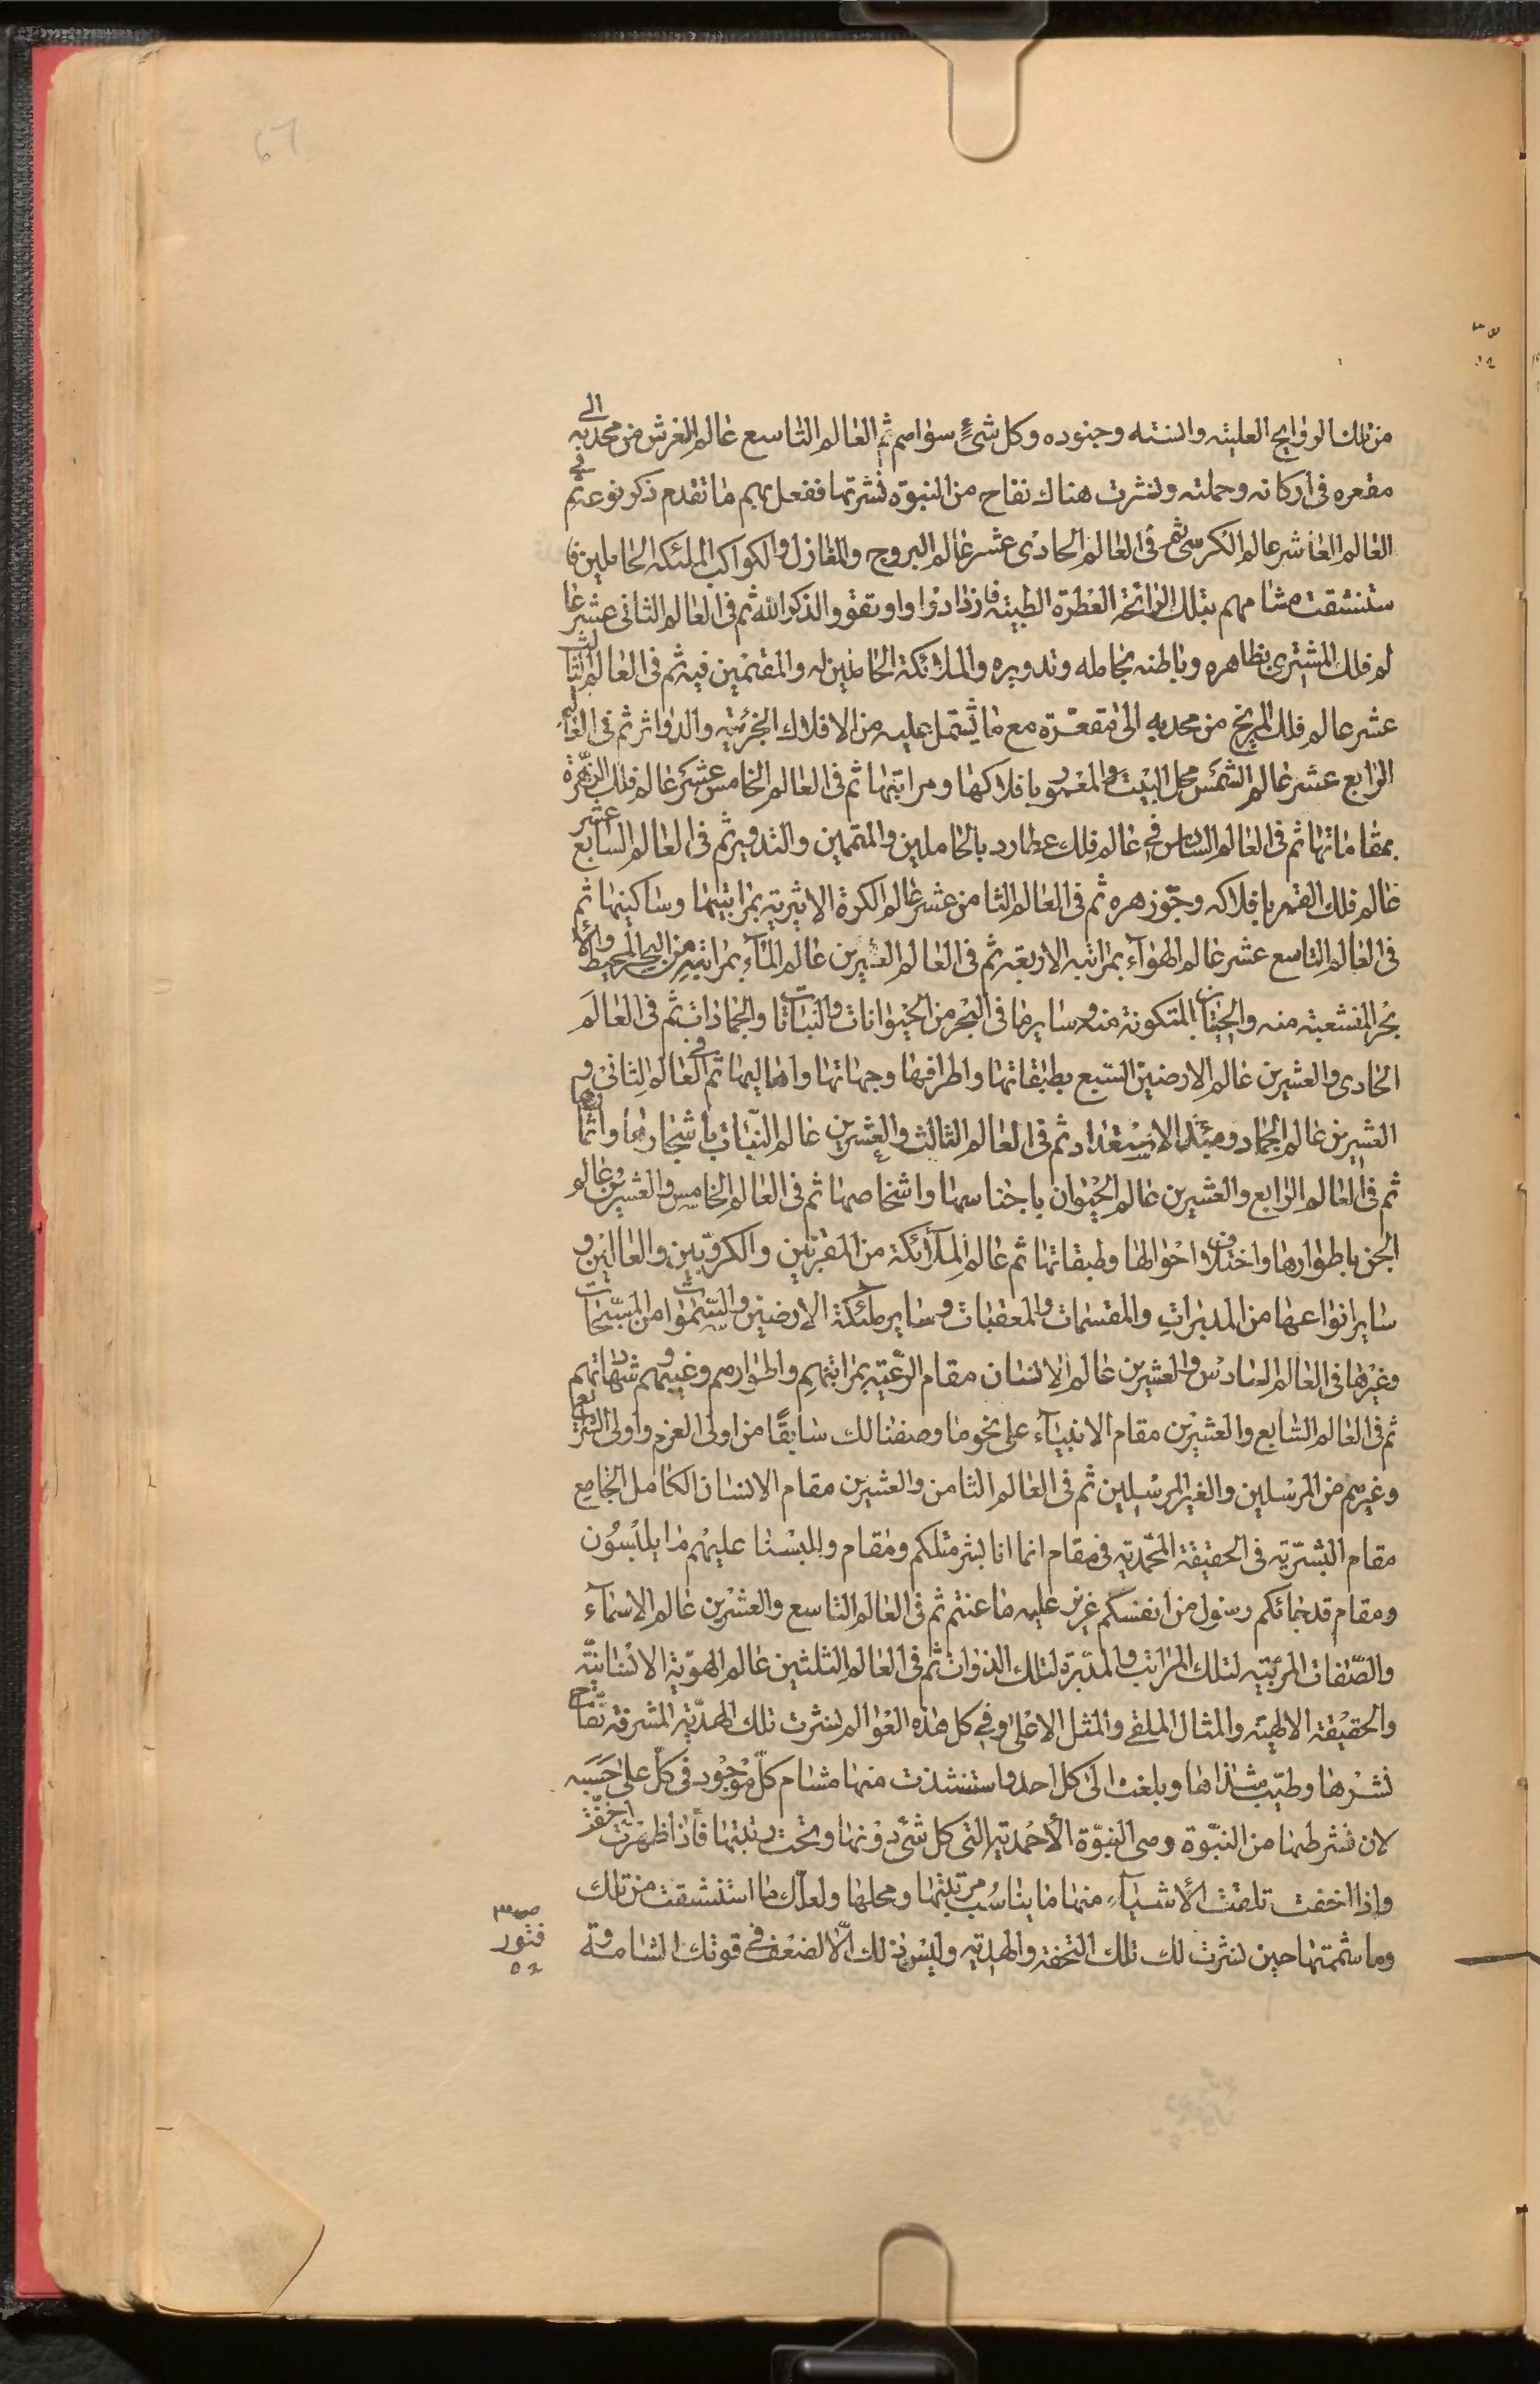 67
من تلك الروايح العليته والسنته وجنوده وكل شئ سواهم ثم العالم التاسع عالم العرش من محدبه الى
مقعره فى اركانه وحملته ونشرت هناك نفاح من النبوة نشرتها ففعل بهم ما تقدم ذكر نوعه ثم فى
العالم العاشر عالم الكرسى ثم فى العالم الحادى عشر عالم البروج والمنازل والكواكب الملئكة الحاملين فا
ستنشقت مشامهم بتلك الرائحة العطرة الطيبة فازدادوا واوتقوا لذكر الله ثم فى العالم الثانى عشر عا
لم فلك المشترى بظاهره وباطنه بحامله وتدويره والملائكة الحاملين له والمقيمين فيه ثم فى العالم الثالث
عشر عالم فلك المريخ من محدبه الى مقعره مع ما يشتمل عليه من الافلاك الجزئيته والدوائر ثم فى العالم
الرابع عشر عالم الشمس محل البيت والمعمور بافلاكها ومراتبها ثم فى العالم الخامس عشر عالم فلك الزهرة
بمقاماتها ثم فى العالم السادس فى عالم فلك عطارد بالحاملين والمتممين والتدوير ثم فى العالم السابع عشر
عالم فلك القمر بافلاكه وجوزهره ثم فى العالم الثامن عشر عالم الكرة الاثيرية بمراتبها وساكنيها ثم
فى العالم التاسع عشر عالم الهوآء بمراتبه الاربعة ثم فى العالم العشرين عالم المآء بمراتبه من البحر المحيط والا
بحر المنشعبة منه والحيتان المتكونة منه وسايرما فى البحر من الحيوانات والنباتات والجمادات ثم فى العالم
الحادى والعشرين عالم الارضين السبع بطبقاتها واطرافها وجهاتها واهاليها ثم فى العالم الثانى و
العشرين عالم الجماد ومبدء الاستعداد ثم فى العالم الثالث والعشرين عالم النبات باشجارها واثمارها
ثم فى العالم الرابع والعشرين عالم الحيوان باجناسها واشخاصها ثم فى العالم الخامس والعشرين عالم
الجن باطوارها واختلاف احوالها وطبقاتها ثم عالم الملآئكة من المقربين والكروبيين والعالين و
ساير انواعها من المدبرات والمقسمات والمعقبات وساير ملئكة الارضين والسموات من المسبحات
وغيرها فى العالم السادس والعشرين عالم الانسان مقام الرعيته بمراتبهم واطوارهم وغيبهم وشهاداتهم
ثم فى العالم السابع والعشرين مقام الانبيآء على نحو ما وصفنا لك سابقا من اولى العزم واولى الشرايع
وغيرهم من المرسلين والغير المرسلين ثم فى العالم الثامن والعشرين مقام الانسان الكامل الجامع
مقام البشرية فى الحقيقة المحمدية فى مقام انما انا بشر مثلكم ومقام وللبسنا عليهم ما يلبسون
ومقام قد جائكم رسول من انفسكم عزيز عليه ما عنتم ثم فى العالم التاسع والعشرين عالم الاسمآء
والصفات المربيته لتلك المراتب والمدبرة لتلك الذوات ثم فى العالم الثلثين عالم الهوية الانسانية
والحقيقة الالهية والمثال الملقى والمثل الاعلى وفى كل هذه العوالم لنشرت تلك الهدية المشرفة نفاح
نشرها وطيب شذاها وبلغت الى كل احد واستنشذت منها مشام كل موجود فى كل على حسبه
لان نشرطها من النبوة وهى النبوة الأحمدية التى كل شئ دونها وتحت رتبتها فاذا ظهرت اخفت
واذا اخفت تلقت الأشيآء منها ما يناسب مرتبتها ومحلها ولعلك ما استنشقت من تلك
وما شممتها حين نشرت لك تلك التحفة والهدية وليس ذلك الا لضعف فى قوتك الشامة و
فتور